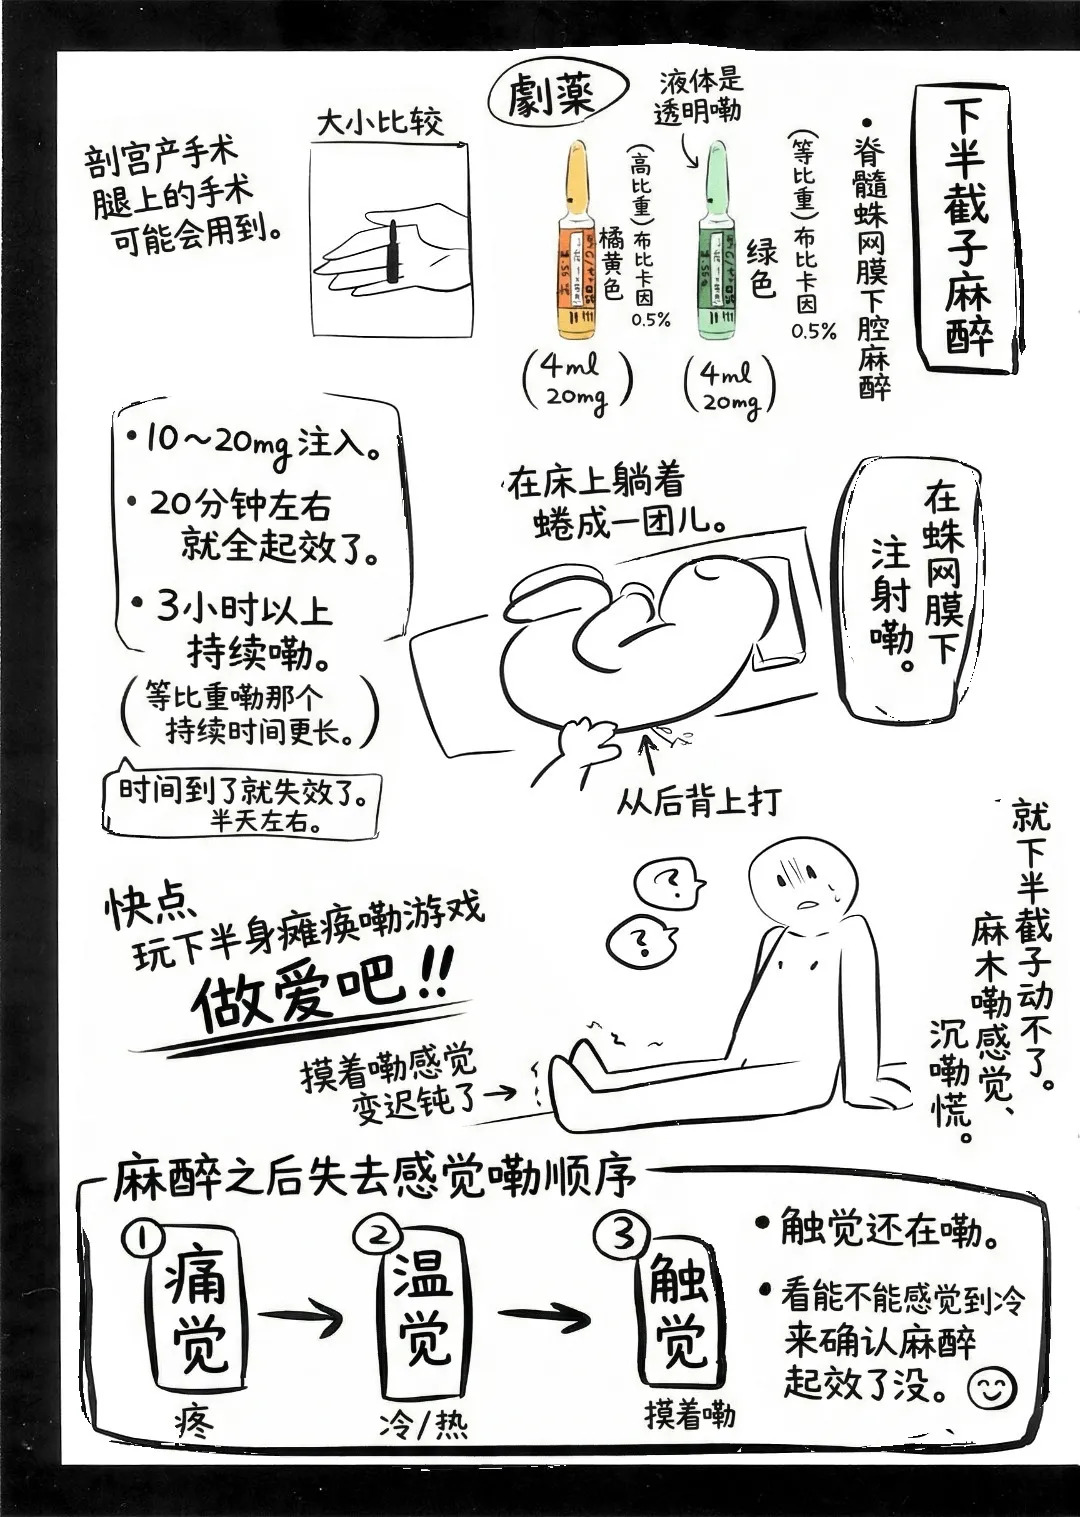 下半截子麻醉
•脊髓蛛网膜下腔麻醉
劇薬
液体是
透明嘞
(等比重)布比卡因
0.5%
绿色
(高比重)布比卡因
0.5%
橘黄色
(4ml
20mg)
(4ml
20mg)
大小比较
剖宫产手术
腿上的手术
可能会用到。
•10～20mg注入。
•20分钟左右
就全起效了。
•3小时以上
持续嘞。
(等比重嘞那个
持续时间更长。)
时间到了就失效了。
半天左右。
在蛛网膜下
注射嘞。
在床上躺着
蜷成一团儿。
从后背上打
就下半截子动不了。
麻木嘞感觉、
沉嘞慌。
?
?
快点
玩下半身瘫痪嘞游戏
做爱吧!!
摸着嘞感觉
变迟钝了→
麻醉之后失去感觉嘞顺序
①痛觉
疼
②温觉
冷/热
③触觉
摸着嘞
•触觉还在嘞。
•看能不能感觉到冷
来确认麻醉
起效了没。